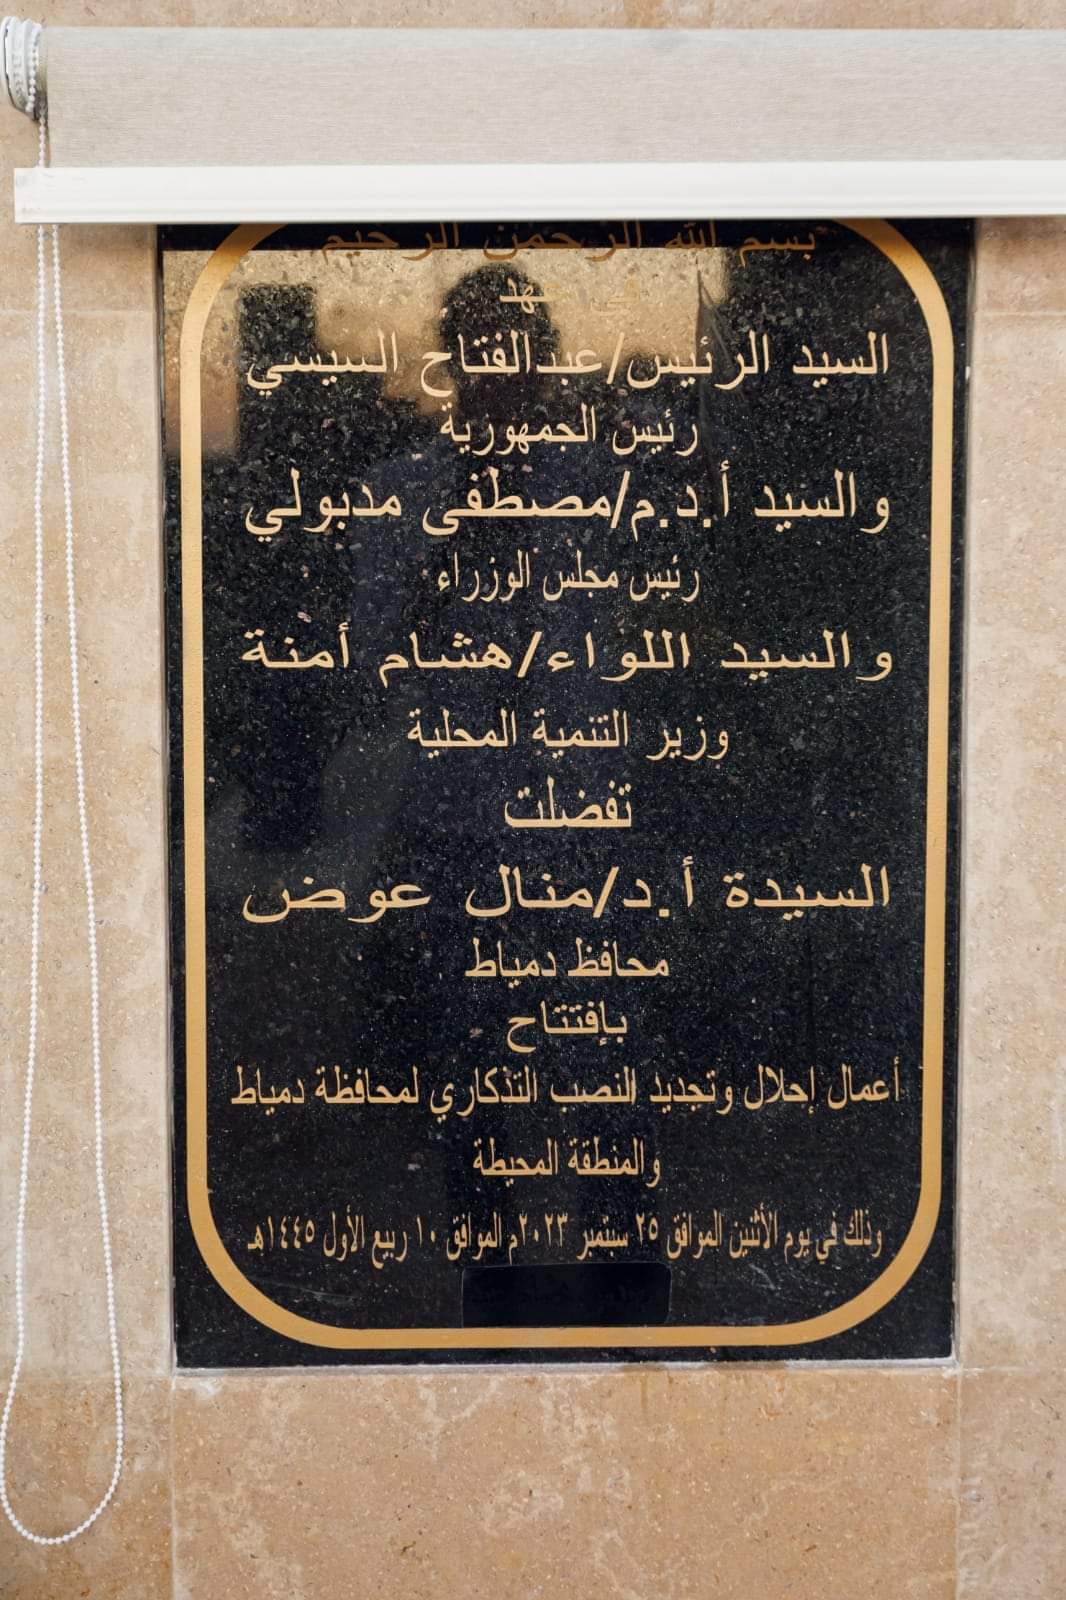 بسم الله الرحمن الرحيم
في عهد
السيد الرئيس/عبدالفتاح السيسي
رئيس الجمهورية
والسيد أ.د.م/مصطفى مدبولي
رئيس مجلس الوزراء
والسيد اللواء/هشام أمنة
وزير التنمية المحلية
تفضلت
السيدة أ.د/منال عوض
محافظ دمياط
بإفتتاح
أعمال إحلال وتجديد النصب التذكاري لمحافظة دمياط
والمنطقة المحيطة
وذلك في يوم الأثنين الموافق ٢٥ سبتمبر ٢٠٢٣م الموافق ١٠ ربيع الأول ١٤٤٥هـ